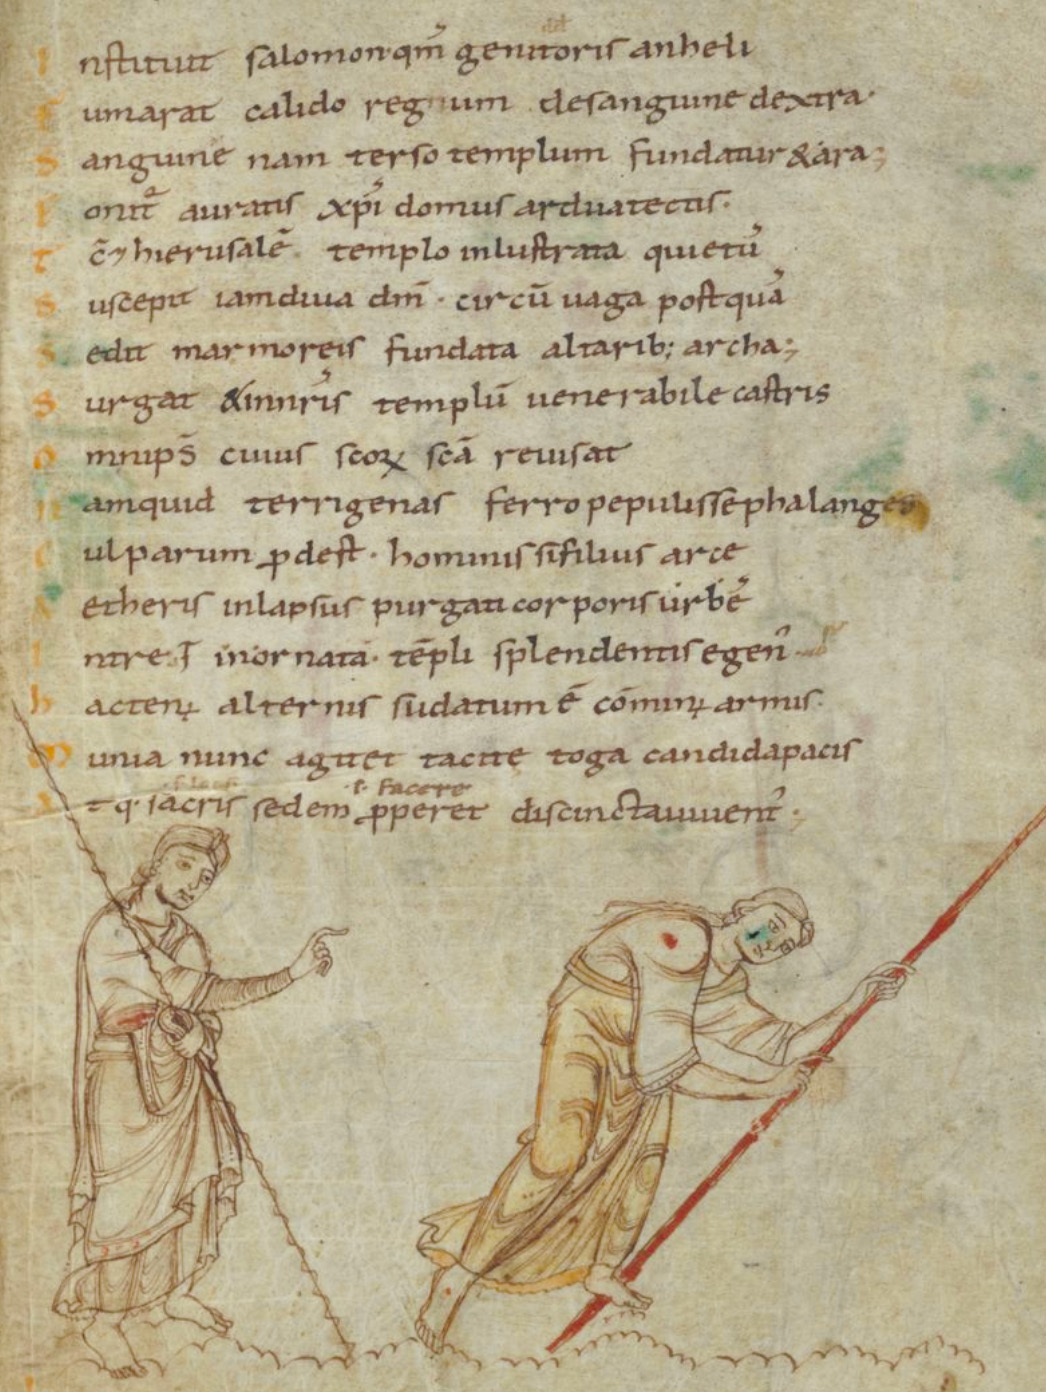 Instituit salomon· qm̄ genitoris anheli
fumarat calido regnum desanguine dextra·
Sanguine nam terso templum fundatur & ara;
ponit᷑ auratis xp̄i domus ardua tectis·
Tc̄ hierusalē templo inlustrata quietū
Suscepit iam diua dm̄· circū uaga postquā
Sedit marmoreis fundata altarib; archa;
Surgat & in nr̄is templū uenerabile castris
omnips̄ cuius scoꝝ scā reuisat
Nam quid terrigenas ferro pepulisse phalanges
Culparum ꝓdest· hominis si filius arce
Aetheris inlapsus purgati corporis urbē
Intret inornatā· tēpli splendentis egen᷑
hacten; alternis sudatum ē comin; armis·
Munia nunc agitet tacite toga candida pacis
s· facere
Atq· sacris sedem ꝓperet discincta iuuent᷑·